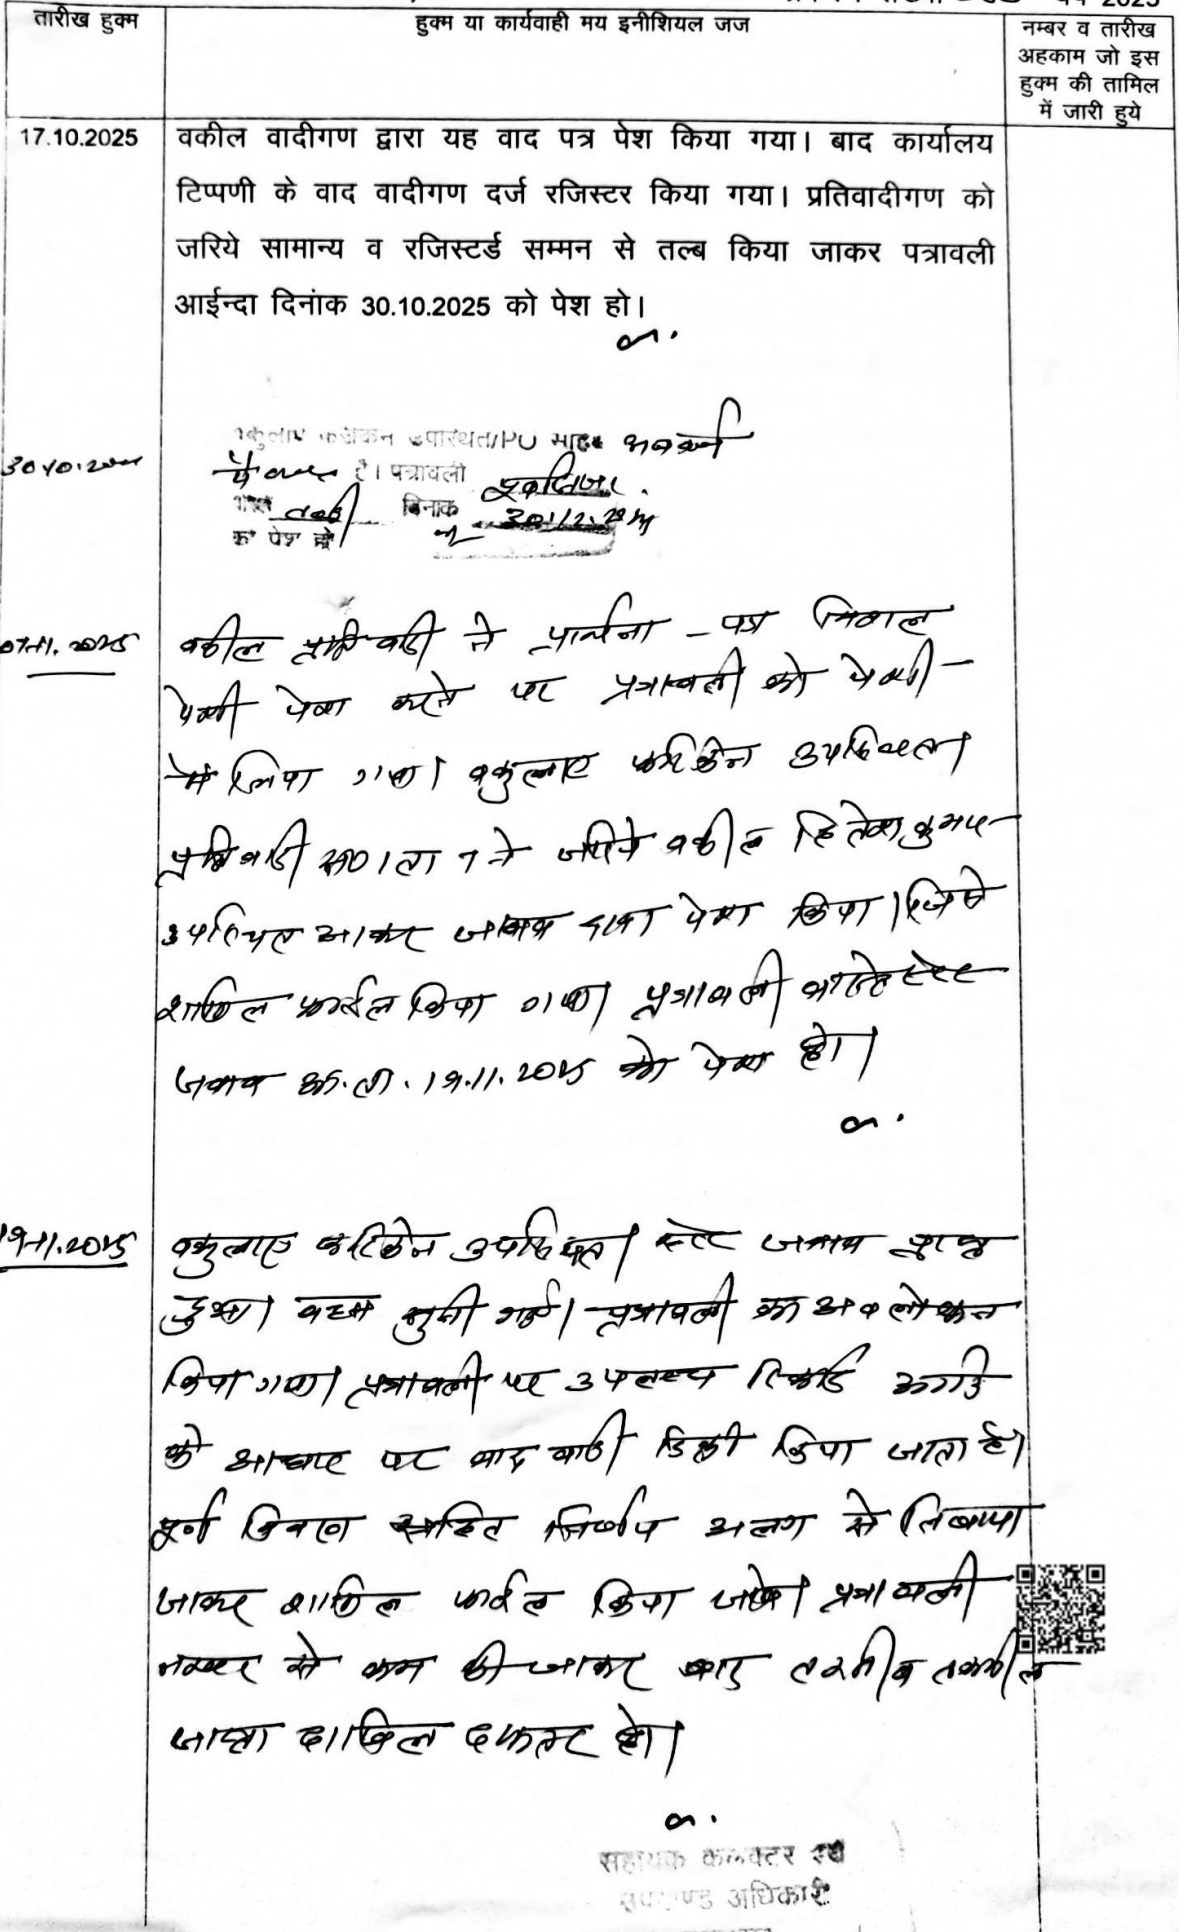 वर्ष 2025
तारीख हुक्म
हुक्म या कार्यवाही मय इनीशियल जज
नम्बर व तारीख
अहकाम जो इस
हुक्म की तामिल
में जारी हुये
17.10.2025
वकील वादीगण द्वारा यह वाद पत्र पेश किया गया। बाद कार्यालय
टिप्पणी के वाद वादीगण दर्ज रजिस्टर किया गया। प्रतिवादीगण को
जरिये सामान्य व रजिस्टर्ड सम्मन से तल्ब किया जाकर पत्रावली
आईन्दा दिनांक 30.10.2025 को पेश हो।
वकुलाए फरीकेन उपस्थित/PO साहब
है। पत्रावली
दिनांक
को पेश हो
वकील प्रतिवादी ने प्रार्थना - पत्र
पेशी पेश करने पर पत्रावली को पेशी
में लिया गया। वकुलाए फरिकेन उपस्थित।
प्रतिवादी सं0 1 ता 7 ने जरिये वकील हितेश कुमार
उपस्थित आकर जवाब दावा पेश किया। जिसे
शामिल फाईल किया गया। पत्रावली वास्ते स्टेट
जवाब 19.11.2025 को पेश हो।
19.11.2025
वकुलाए फरिकेन उपस्थित। स्टेट जवाब प्राप्त
हुआ। बहस सुनी गई। पत्रावली का अवलोकन
किया गया। पत्रावली पर उपलब्ध रिकॉर्ड आदि
के आधार पर वाद वादी डिक्री किया जाता है।
पूर्ण विवरण सहित निर्णय अलग से लिखाया
जाकर शामिल फाईल किया जावे। पत्रावली
नम्बर से कम की जाकर बाद तरतीब तकमील
जाप्ता दाखिल दफ्तर हो।
सहायक कलक्टर एवं
उपखण्ड अधिकारी